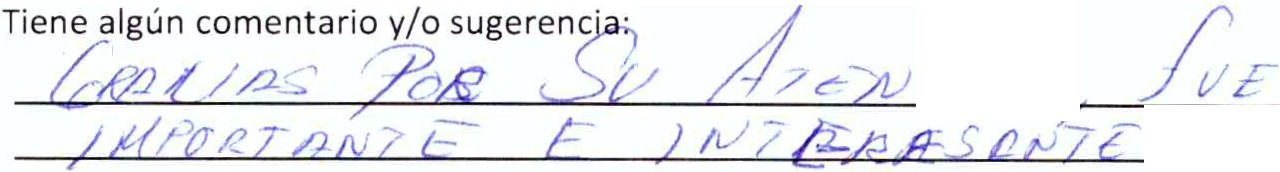 Tiene algún comentario y/o sugerencia:
GRACIAS POR SU ATEN FUE
IMPORTANTE E INTERESANTE